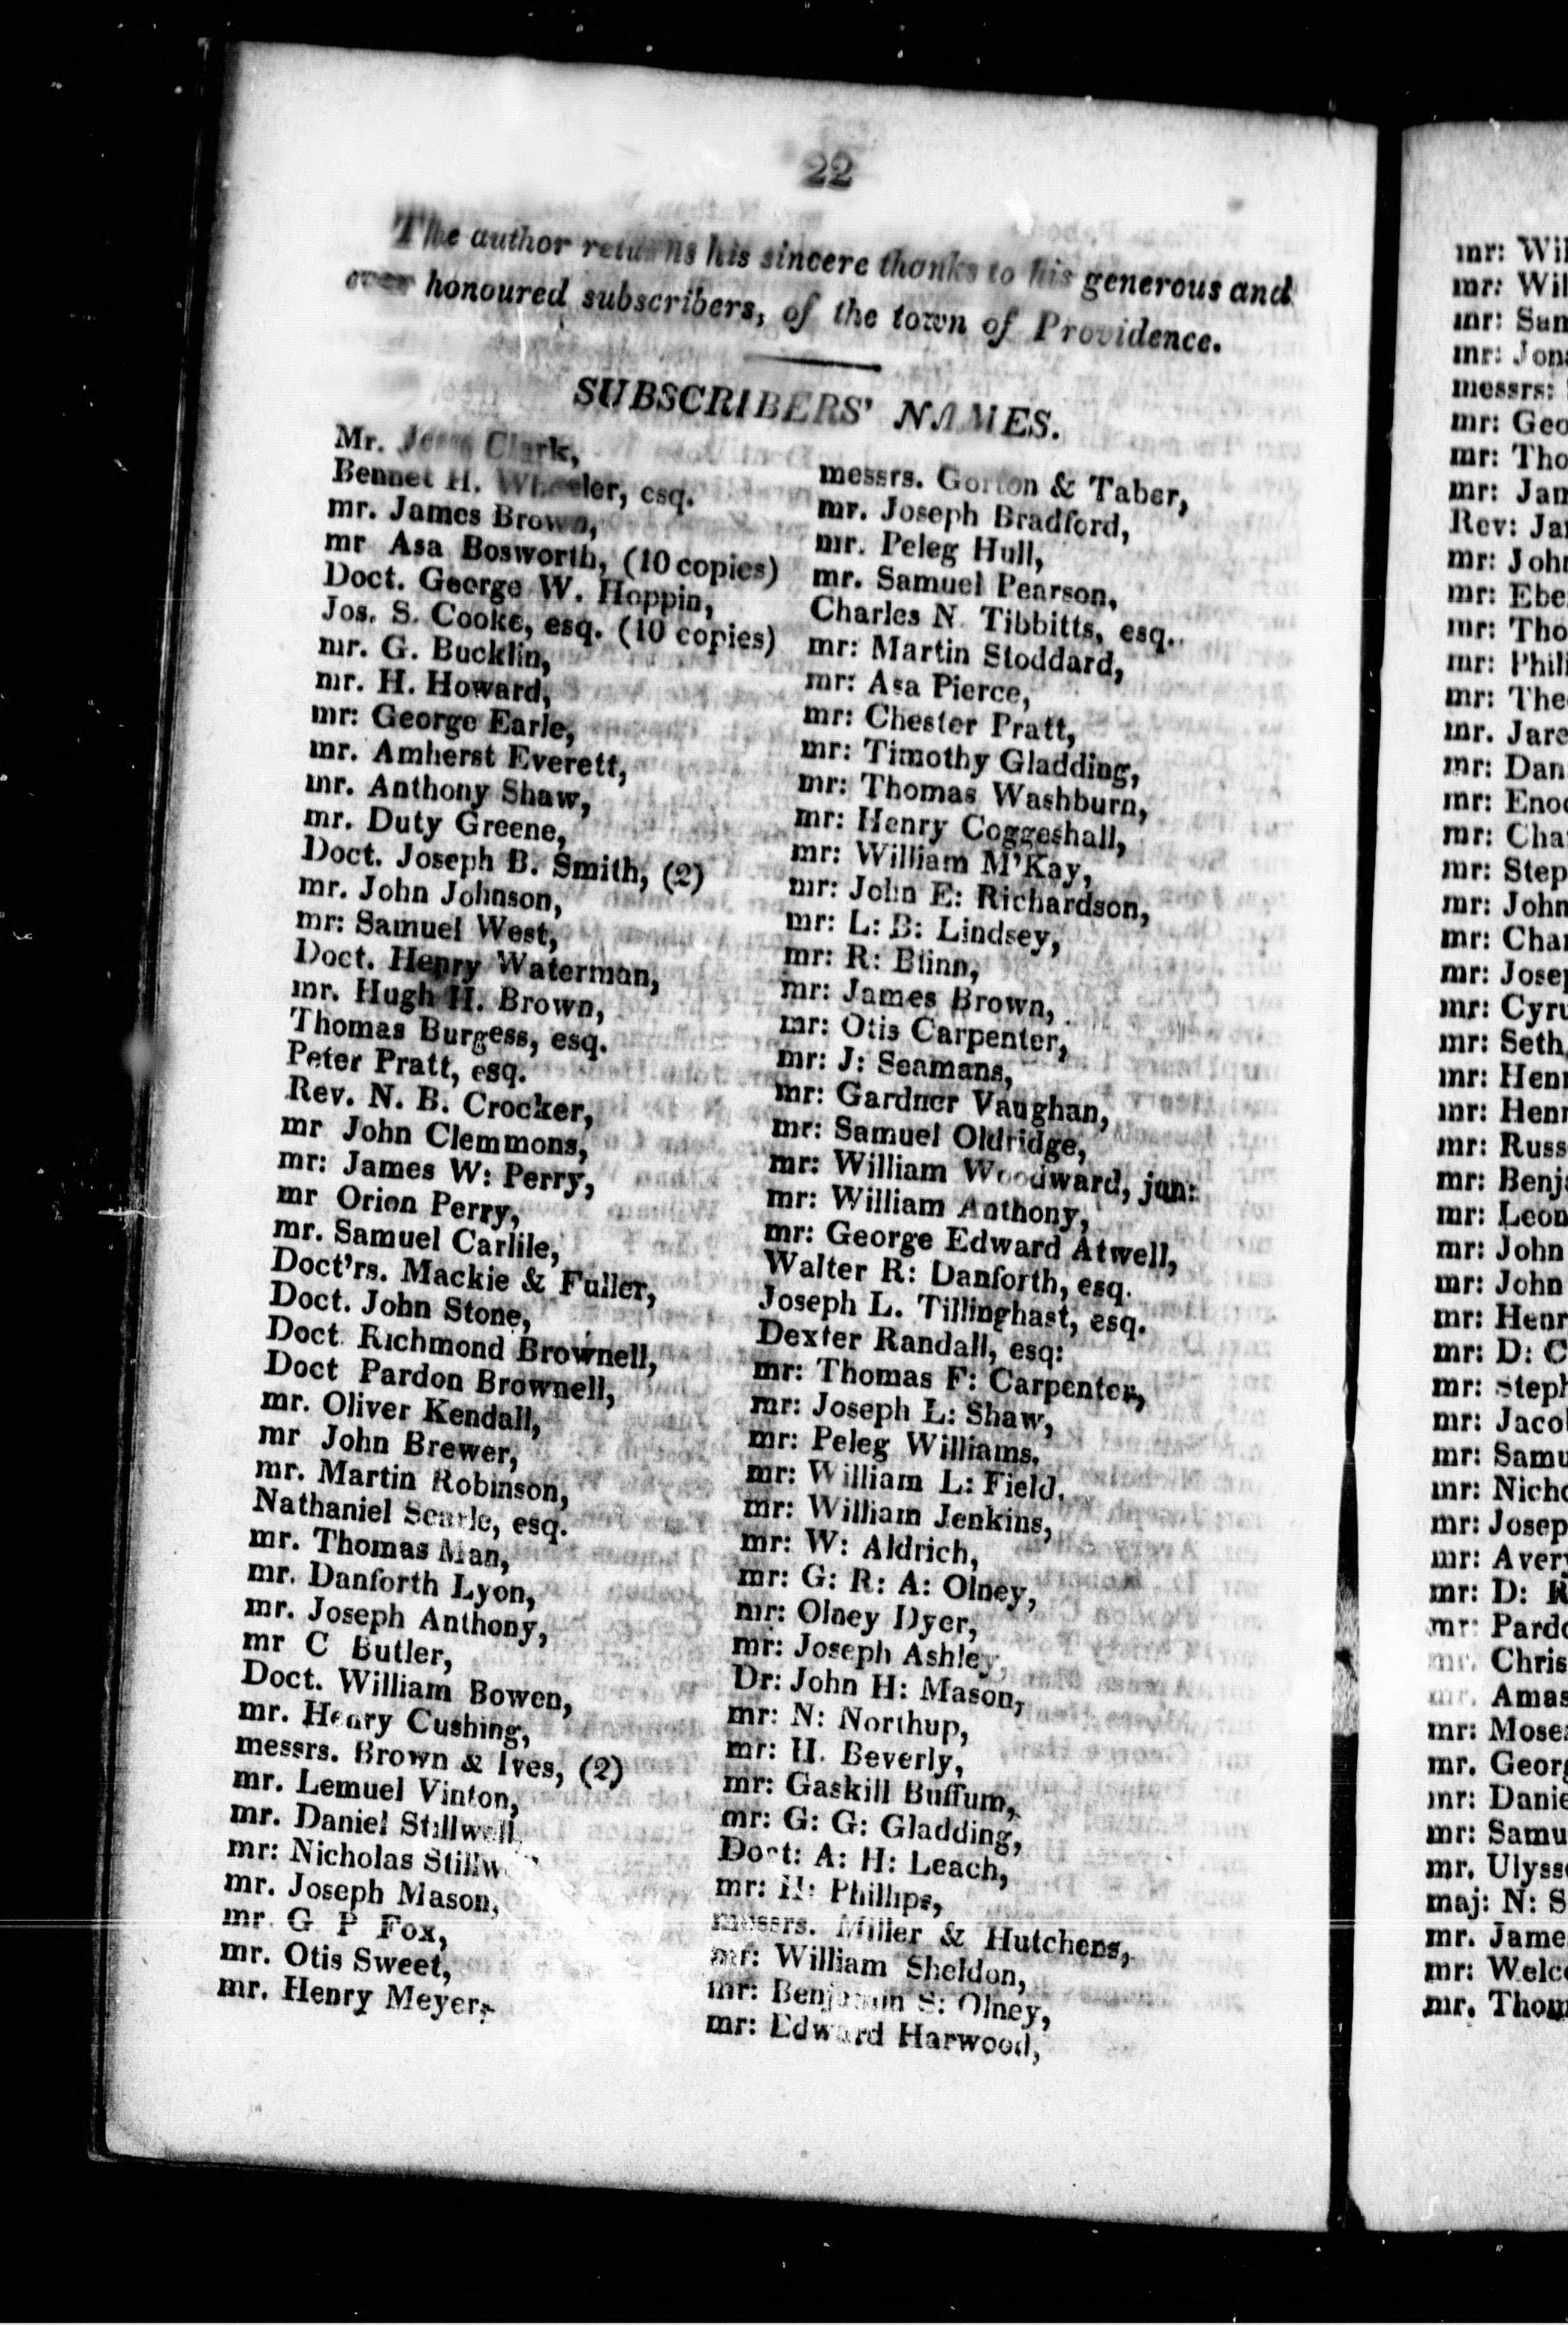 22
The author returns his sincere thanks to his generous and
ever honoured subscribers, of the town of Providence.
SUBSCRIBERS' NAMES.
Mr. Clark,
Bennet H. Wheeler, esq.
mr. James Brown,
mr Asa Bosworth, (10 copies)
Doct. George W. Hoppin,
Jos. S. Cooke, esq. (10 copies)
mr. G. Bucklin,
mr. H. Howard,
mr: George Earle,
mr. Amherst Everett,
mr. Anthony Shaw,
mr. Duty Greene,
Doct. Joseph B. Smith, (2)
mr. John Johnson,
mr: Samuel West,
Doct. Henry Waterman,
mr. Hugh H. Brown,
Thomas Burgess, esq.
Peter Pratt, esq.
Rev. N. B. Crocker,
mr John Clemmons,
mr: James W: Perry,
mr Orion Perry,
mr. Samuel Carlile,
Doct'rs. Mackie & Fuller,
Doct. John Stone,
Doct Richmond Brownell,
Doct Pardon Brownell,
mr. Oliver Kendall,
mr John Brewer,
mr. Martin Robinson,
Nathaniel Searle, esq.
mr. Thomas Man,
mr. Danforth Lyon,
mr. Joseph Anthony,
mr C Butler,
Doct. William Bowen,
mr. Henry Cushing,
messrs. Brown & Ives, (2)
mr. Lemuel Vinton,
mr. Daniel Stillwell
mr: Nicholas
mr. Joseph Mason,
mr. G P Fox,
mr. Otis Sweet,
mr. Henry Meyer,
messrs. Gorton & Taber,
mr. Joseph Bradford,
mr. Peleg Hull,
mr. Samuel Pearson,
Charles N. Tibbitts, esq.
mr: Martin Stoddard,
mr: Asa Pierce,
mr: Chester Pratt,
mr: Timothy Gladding,
mr: Thomas Washburn,
mr: Henry Coggeshall,
mr: William M'Kay,
mr: John E: Richardson,
mr: L: B: Lindsey,
mr: R: Blinn,
mr: James Brown,
mr: Otis Carpenter,
mr: J: Seamans,
mr: Gardner Vaughan,
mr: Samuel Oldridge,
mr: William Woodward, jun:
mr: William Anthony,
mr: George Edward Atwell,
Walter R: Danforth, esq.
Joseph L. Tillinghast, esq.
Dexter Randall, esq:
mr: Thomas F: Carpenter,
mr: Joseph L: Shaw,
mr: Peleg Williams.
mr: William L: Field.
mr: William Jenkins,
mr: W: Aldrich,
mr: G: R: A: Olney,
mr: Olney Dyer,
mr: Joseph Ashley,
Dr: John H: Mason,
mr: N: Northup,
mr: H. Beverly,
mr: Gaskill Buffum,
mr: G: G: Gladding,
Doct: A: H: Leach,
mr: H: Phillips,
messrs. Miller & Hutchens,
mr: William Sheldon,
mr: Benjamin S: Olney,
mr: Edward Harwood,
mr: Wil
mr: Wil
mr: Sam
mr: Jon
messrs:
mr: Geo
mr: Tho
mr: Jam
Rev: Ja
mr: John
mr: Ebe
mr: Tho
mr: Phili
mr: The
mr. Jare
mr: Dan
mr: Enoc
mr: Cha
mr: Step
mr: John
mr: Char
mr: Josep
mr: Cyru
mr: Seth
mr: Henr
mr: Henr
mr: Russ
mr: Benj
mr: Leon
mr: John
mr: John
mr: Henr
mr: D: C
mr: Steph
mr: Jaco
mr: Samu
mr: Nicho
mr: Josep
mr: Avery
mr: D: R
mr: Pardo
mr. Chris
mr. Amas
mr: Mose
mr. Georg
mr: Danie
mr: Samu
mr. Ulyss
maj: N: S
mr. Jame
mr: Welc
mr. Thom